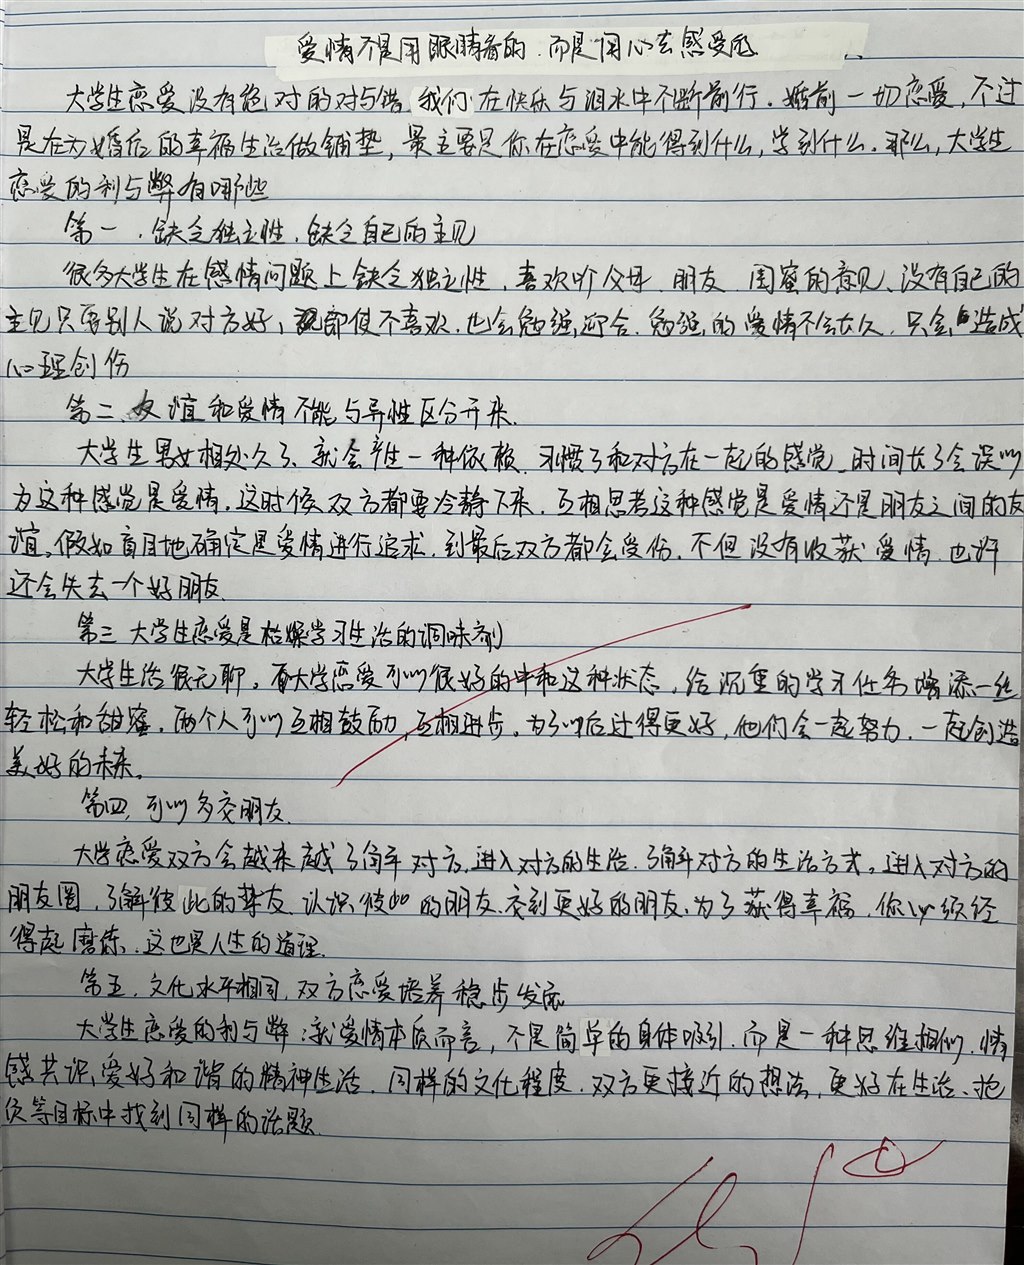 爱情不是用眼睛看的.而是用心去感受的
大学生恋爱没有绝对的对与错.我们在快乐与泪水中不断前行.婚前一切恋爱,不过
是在为婚后的幸福生活做铺垫,最主要是你在恋爱中能得到什么,学到什么.那么,大学生
恋爱的利与弊有哪些
第一.缺乏独立性.缺乏自己的主见
很多大学生在感情问题上缺乏独立性,喜欢听父母.朋友.闺蜜的意见、没有自己的
主见只要别人说对方好,即使不喜欢.也会勉强迎合.勉强的爱情不会长久.只会造成
心理创伤
第二、友谊和爱情不能与异性区分开来.
大学生男女相处久了、就会产生一种依赖.习惯了和对方在一起的感觉.时间长了会误以
为这种感觉是爱情.这时候双方都要冷静下来.互相思考这种感觉是爱情还是朋友之间的友
谊,假如盲目地确定是爱情进行追求.到最后双方都会受伤.不但没有收获爱情.也许
还会失去一个好朋友.
第三大学生恋爱是枯燥学习生活的调味剂
大学生活很无聊,而大学恋爱可以很好的中和这种状态,给沉重的学习任务增添一丝
轻松和甜蜜,两个人可以互相鼓励,互相进步,为了以后过得更好,他们会一起努力.一起创造
美好的未来。
第四,可以多交朋友.
大学恋爱双方会越来越了解对方,进入对方的生活.了解对方的生活方式,进入对方的
朋友圈,了解彼此的梦友.认识彼此的朋友、交到更好的朋友、为了获得幸福,你必须经
得起磨练.这也是人生的道理.
第五.文化水平相同.双方恋爱培养稳步发展
大学生恋爱的利与弊:就爱情本质而言,不是简单的身体吸引.而是一种思维相似.情
感共识、爱好和谐的精神生活.同样的文化程度.双方更接近的想法,更好在生活、抱
负等目标中找到同样的话题.